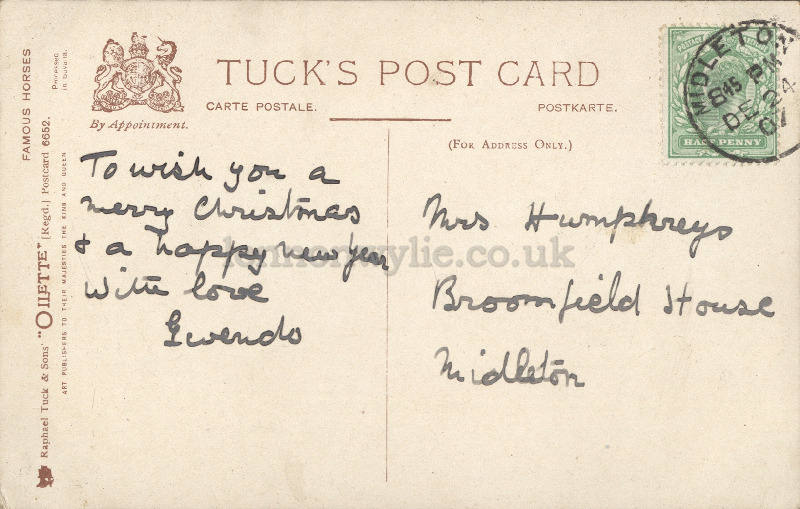 FAMOUS HORSES
Processed in Bavaria.
Raphael Tuck & Sons' "OILETTE" [Regd.] Postcard 6652.
ART PUBLISHERS TO THEIR MAJESTIES THE KING AND QUEEN
By Appointment.
TUCK'S POST CARD
CARTE POSTALE.
POSTKARTE.
(FOR ADDRESS ONLY.)
MIDLETON
8 45 PM
DE 24
07
POSTAGE
HALF PENNY
To wish you a
merry Christmas
& a happy new year
with love
Gwendo
Mrs Humphreys
Broomfield House
Midleton